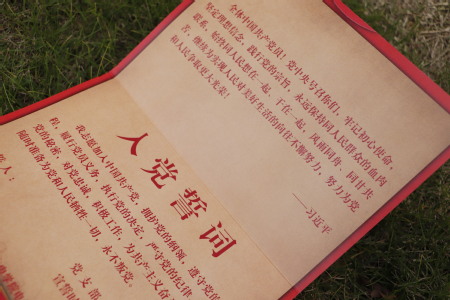 全体中国共产党员！党中央号召你们，牢记初心使命，
坚定理想信念，践行党的宗旨，永远保持同人民群众的血肉
联系，始终同人民想在一起、干在一起，风雨同舟、同甘共
苦，继续为实现人民对美好生活的向往不懈努力，努力为党
和人民争取更大光荣！
——习近平
入党誓词
我志愿加入中国共产党，拥护党的纲领，遵守党的
程，履行党员义务，执行党的决定，严守党的纪律
党的秘密，对党忠诚，积极工作，为共产主义奋
随时准备为党和人民牺牲一切，永不叛党。
人：
党支部
宣誓时